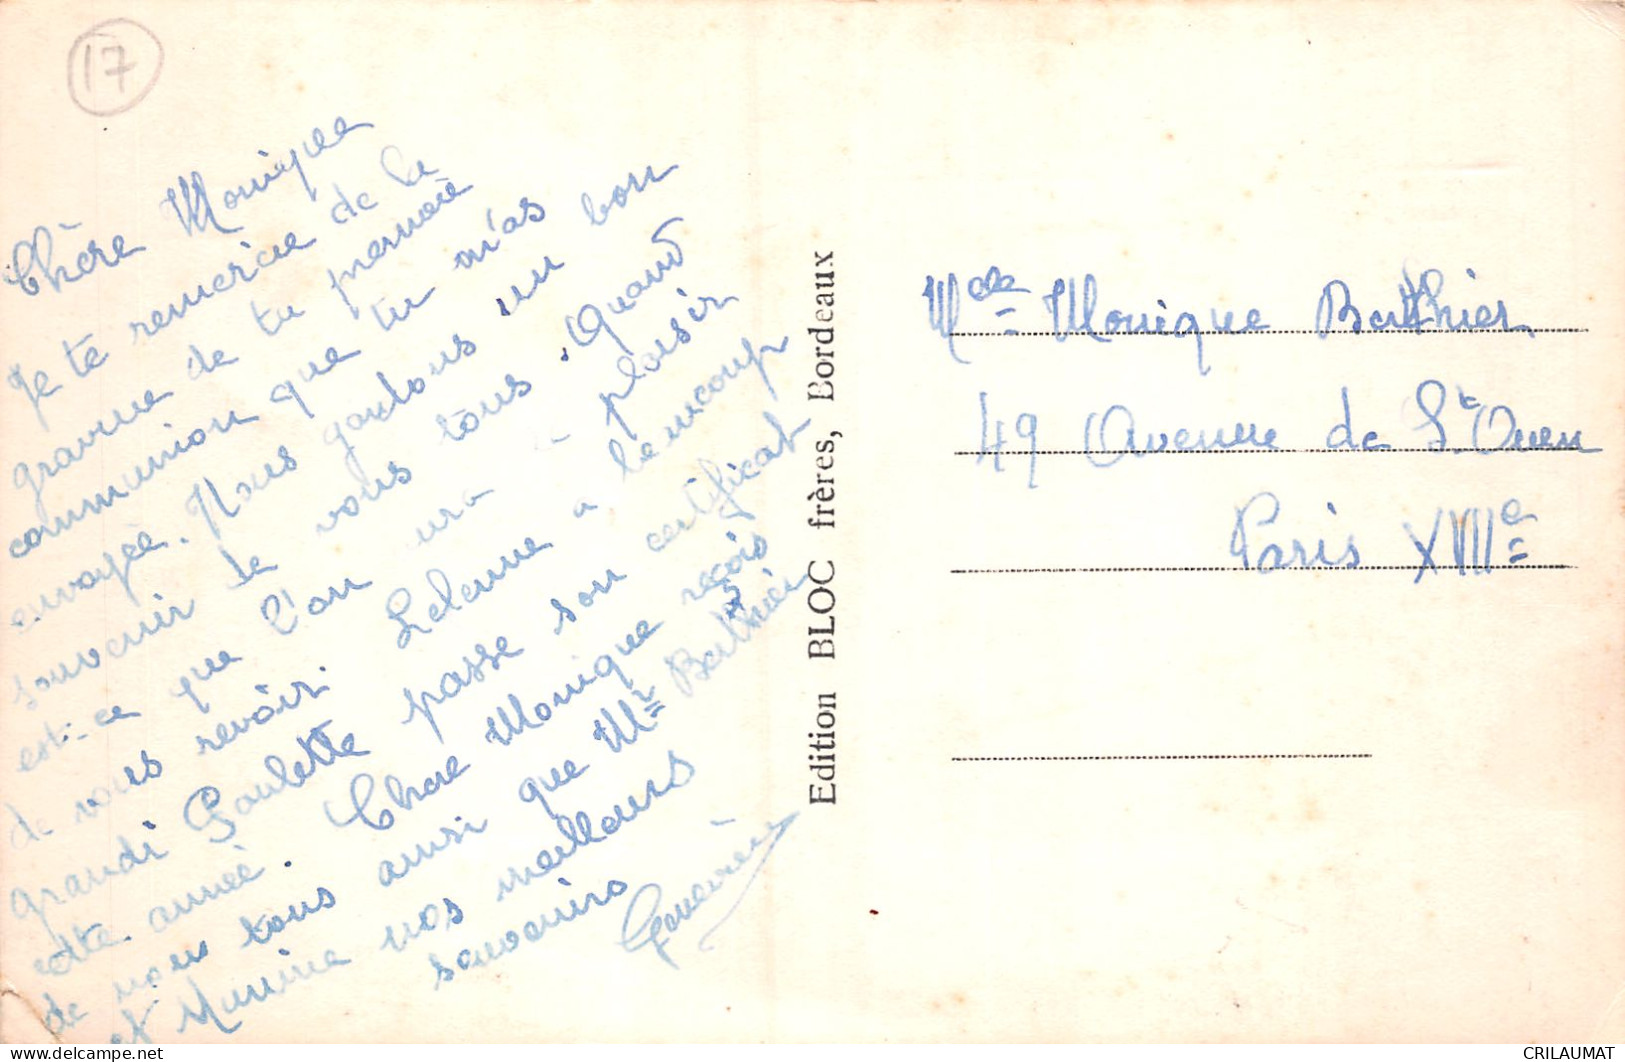 17
Chère Monique
Je te remercie de la
gravure de tu première
communion que tu m'as
envoyée. Nous gardons un bon
souvenir de vous tous. Quand
est-ce que l'on aura le plaisir
de vous revoir. Lelenne a beaucoup
grandi Paulette passe son certificat
cette année. Chère Monique reçois
de nous tous ainsi que Mr Berthier
et Mimine nos meilleurs
souvenirs
Geneviève
Edition BLOC frères, Bordeaux
Melle Monique Berthier
49 Avenue de St Ouen
Paris XVIIIe
CRILAUMAT